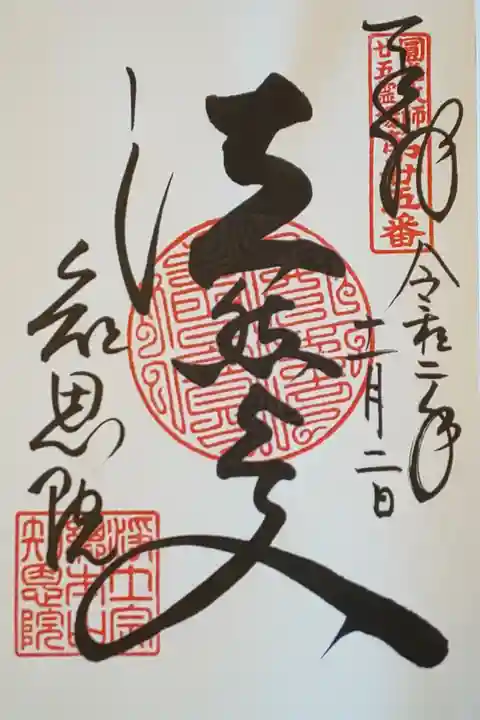 奉拝
圓光大師
廿五霊場
第廿五番
令和二年
二月二日
法然上人
知恩院
淨土宗
總本山
知恩院